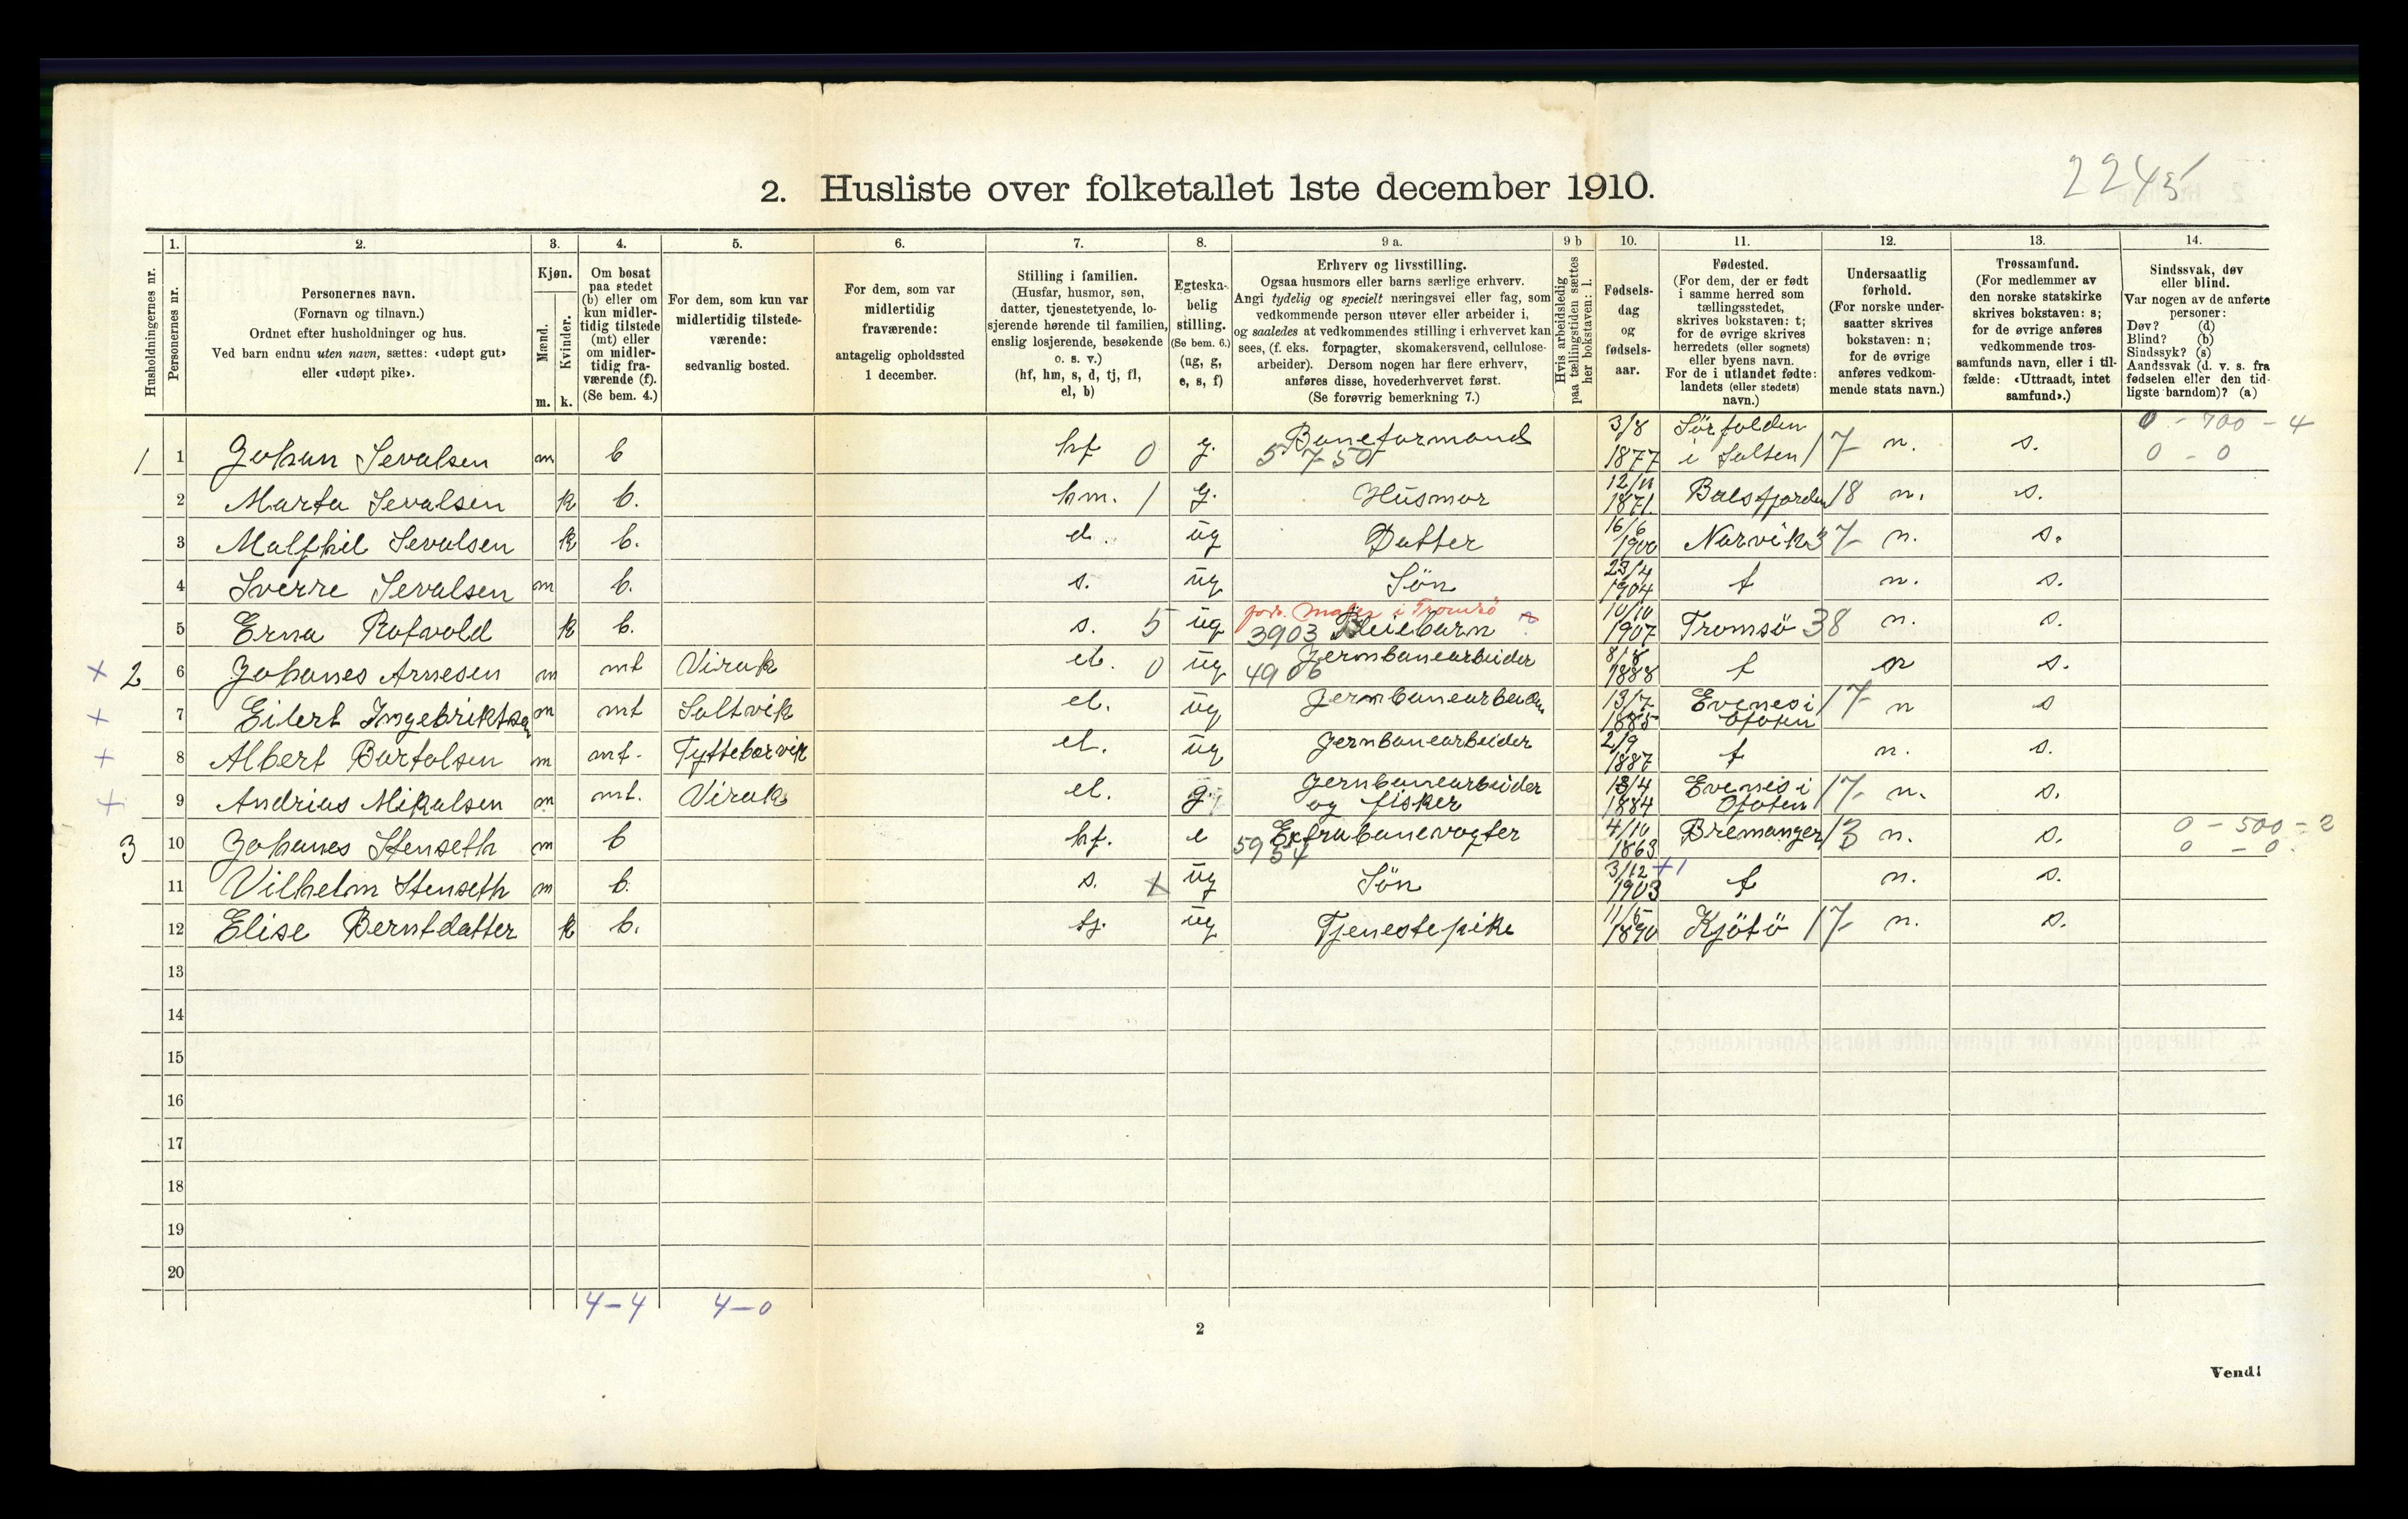 2245
2. Husliste over folketallet 1ste december 1910.
Husholdningernes nr.
1.
Personernes nr.
2.
Personernes navn.
(Fornavn og tilnavn.)
Ordnet efter husholdninger og hus.
Ved barn endnu uten navn, sættes: «udøpt gut»
eller «udøpt pike».
3.
Kjøn.
Mænd.
Kvinder.
m. k.
4.
Om bosat
paa stedet
(b) eller om
kun midler-
tidig tilstede
(mt) eller
om midler-
tidig fra-
værende (f).
(Se bem. 4.)
5.
For dem, som kun var
midlertidig tilstede-
værende:
sedvanlig bosted.
6.
For dem, som var
midlertidig
fraværende:
antagelig opholdssted
1 december.
7.
Stilling i familien.
(Husfar, husmor, søn,
datter, tjenestetyende, lo-
sjerende hørende til familien,
enslig losjerende, besøkende
o. s. v.)
(hf, hm, s, d, tj, fl,
el, b)
8.
Egteska-
belig
stilling.
(Se bem. 6.)
(ug, g,
e, s, f)
9 a.
Erhverv og livsstilling.
Ogsaa husmors eller barns særlige erhverv.
Angi tydelig og specielt næringsvei eller fag, som
vedkommende person utøver eller arbeider i,
og saaledes at vedkommendes stilling i erhvervet kan
sees, (f. eks. forpagter, skomakersvend, cellulose-
arbeider). Dersom nogen har flere erhverv,
anføres disse, hovederhvervet først.
(Se forøvrig bemerkning 7.)
9 b
Hvis arbeidsledig
paa tællingstiden sættes
her bokstaven: l.
10.
Fødsels-
dag
og
fødsels-
aar.
11.
Fødested.
(For dem, der er født
i samme herred som
tællingsstedet,
skrives bokstaven: t;
for de øvrige skrives
herredets (eller sognets)
eller byens navn.
For de i utlandet fødte:
landets (eller stedets)
navn.)
12.
Undersaatlig
forhold.
(For norske under-
saatter skrives
bokstaven: n;
for de øvrige
anføres vedkom-
mende stats navn.)
13.
Trossamfund.
(For medlemmer av
den norske statskirke
skrives bokstaven: s;
for de øvrige anføres
vedkommende tros-
samfunds navn, eller i til-
fælde: «Uttraadt, intet
samfund».)
14.
Sindssvak, døv
eller blind.
Var nogen av de anførte
personer:
Døv? (d)
Blind? (b)
Sindssyk? (s)
Aandssvak (d. v. s. fra
fødselen eller den tid-
ligste barndom)? (a)
1 1 Johan Sevalsen m b hf 0 g. Baneformand 5750 3/8 1877 Sörfolden i Salten 17 n. s. 0 - 700 - 4 0 - 0
2 Marta Sevalsen k b. hm. 1 g. Husmor 12/11 1871. Balsfjorden 18 n. s.
3 Malfhil Sevalsen k b. d. ug Datter 16/6 1900 Narvik 37 n. s.
4 Sverre Sevalsen m b. s. ug Sön 23/4 1904 t n. s.
5 Erna Rotvold k b. s. 5 ug fors. Maler i Tromsö 3903 Pleiebarn 10/10 1907 Tromsö 38 n. s.
× 2 6 Johanes Arnesen m mt Virak el. 0 ug Jernbanearbeider 4906 8/8 1888 t n s.
+ 7 Eilert Ingebriktsen m mt Saltvik el. ug Jernbanearbeider 13/7 1885 Evenes i Ofoten 17 n s
+ 8 Albert Bartolsen m mt. Tyttebærvik el. ug Jernbanearbeider 2/9 1887 t n. s.
+ 9 Andrias Mikalsen m mt. Virak el. g. Jernbanearbeider og fisker 13/4 1884 Evenes i Ofoten 17 n. s.
3 10 Johanes Stenseth m b hf. e Extrabanevogter 5954 4/10 1863 Bremanger 13 n. s. 0 - 500 - 2 0 - 0
11 Vilhelm Stenseth m b. s. × ug Sön 3/12 1903 +1 t n. s.
12 Elise Berntdatter k b. tj. ug Tjenestepike 11/5 1890 Kjötö 17 n. s.
13
14
15
16
17
18
19
20
4-4 4-0
2
Vend!